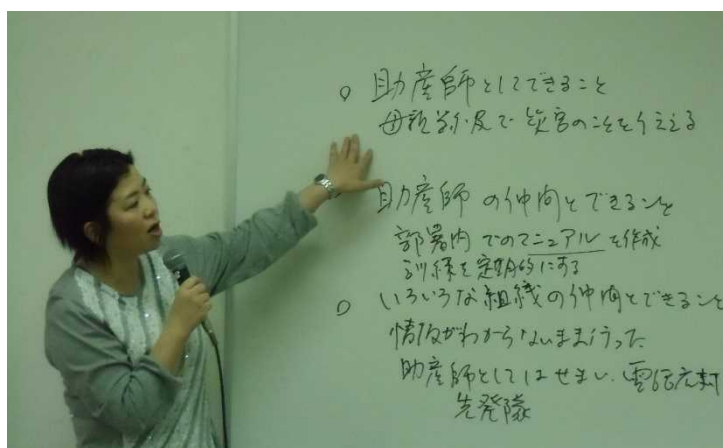 ○ 助産師としてできること
母親学級で災害のことを伝える
助産師の仲間とできること
部署内でのマニュアルを作成
訓練を定期的にする
○ いろいろな組織の仲間とできること
情報がわからないまま行った
助産師としてはせまい、
先発隊